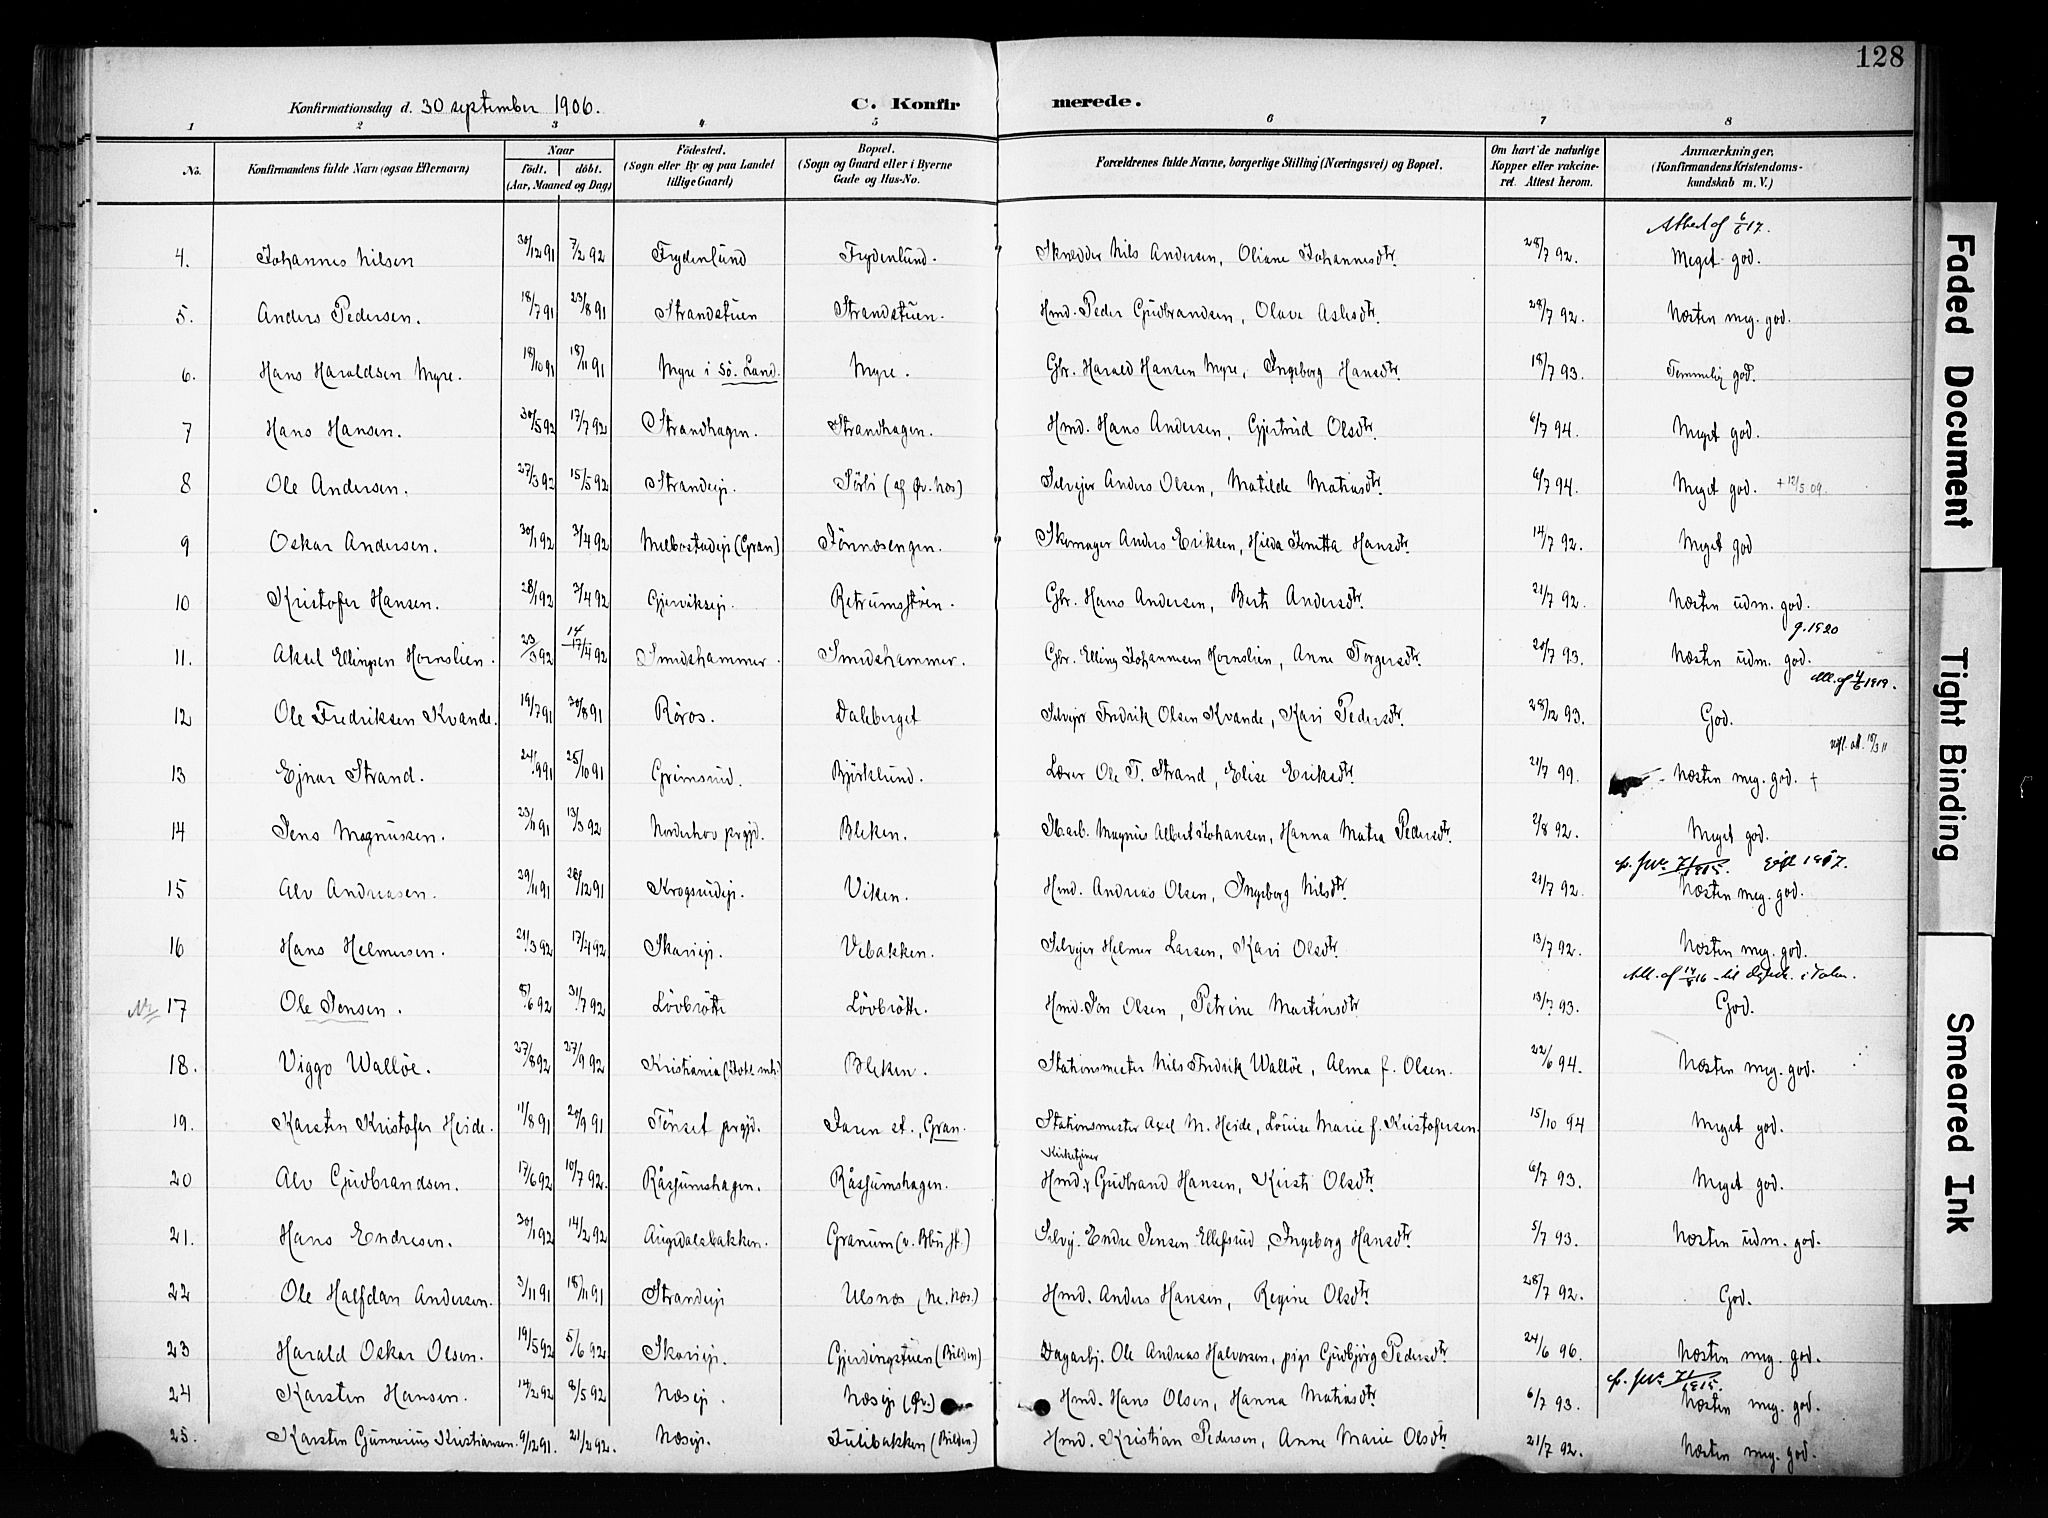 128
Konfirmationsdag d. 30 september 1906. C. Konfir merede.
1 2 3 4 5 6 7 8
No. Konfirmandens fulde Navn (ogsaa Efternavn) Naar født. døbt. (Aar, Maaned og Dag) Fødested. (Sogn eller By og paa Landet tillige Gaard) Bopæl. (Sogn og Gaard eller i Byerne Gade og Hus-No. Forældrenes fulde Navne, borgerlige Stilling (Næringsvei) og Bopæl. Om havt de naturlige Kopper eller vakcineret. Attest herom. Anmærkninger. (Konfirmandens Kristendomskundskab m. V.)
4. Johannes Nilsen 30/12 91 7/2 92 Frydenlund Frydenlund. Skrædder Nils Andersen, Oliane Johannesdtr. 28/7 92. Meget god.
5. Anders Pedersen. 18/7 91 23/8 91 Strandstuen Strandstuen. Hmd. Peder Gudbrandsen, Olave Aslesdtr. 28/7 92. Næsten meg. god.
6. Hans Haraldsen Myre. 18/10 91 18/11 91 Myre i Sö. Land. Myre. Gbr. Harald Hansen Myre, Ingeborg Hansdtr. 18/7 93. Temmelig god.
7 Hans Hansen. 30/5 92 17/7 92 Strandhagen. Strandhagen. Hmd. Hans Andersen, Gjertrud Olsdtr. 6/7 94. Meget god.
8 Ole Andersen. 27/3 92 15/5 92 Strandeije. Sörli (af Øv. Næs) Selvejer Anders Olsen, Matilde Matiasdtr. 6/7 94. Meget god. + 12/5 09.
9 Oskar Andersen. 30/1 92 3/4 92 Melbostadeje (Gran) Tönnesengen. Skomager Anders Eriksen, Hilda Hansdtr. 14/7 92. Meget god
10 Kristofer Hansen. 28/1 92 3/4 92 Gjerviksej. Retrumsstuen. Gbr. Hans Andersen, Berte Andersdtr. 21/7 92. Næsten udm. god.
g. 1920
11. Aksel Ellingsen Hornslien. 23/3 92 14 17/4 92 Smedshammer. Smedshammer. Gbr. Elling Johannesen Hornslien, Anne Torgersdtr. 20/7 93. Næsten udm. god.
12 Ole Fredriksen Kvande. 19/7 91 30/8 91 Röros. Daleberget Selvejer Fredrik Olsen Kvande, Kari Pedersdtr. 28/12 93. God.
13 Ejnar Strand. 24/9 91 25/10 91 Grimsrud. Björklund. Lærer Ole T. Strand, Elise Eriksdtr. 21/7 99. Næsten meg. god. +
14 Jens Magnussen. 23/11 91 13/3 92 Norderhov prgjd. Bleken. Magnus Albert Johansen, Hanna Matea Pedersdtr. 2/8 92. Meget god.
15 Alv Andreasen. 29/11 91 26/12 91 Krogsrudej. Viken. Hmd. Andreas Olsen, Ingeborg Nilsdtr. 21/7 92. Næsten meg. god.
16 Hans Helmersen. 21/3 92 17/4 92 Skariej. Vebakken. Selvejer Helmer Larsen, Kari Olsdtr. 13/7 92. Næsten meg. god.
17 Ole Jensen. 8/6 92 31/7 92 Lövbråtte Lövbråtte. Hmd. Jon Olsen, Petrine Martinsdtr. 13/7 93. God.
18. Viggo Wallöe. 27/8 92 27/9 92 Kristiania Bleken. Stationsmester Nils Fredrik Wallöe, Alma f. Olsen. 22/6 94. Næsten meg. god.
19. Karsten Kristofer Heide. 11/8 91 20/9 91 Tönset prgjd. Jaren st., Gran. Stationsmester Axel M. Heide, Louise Marie f. Kristofersen. 15/10 94 Meget god.
20 Alv Gudbrandsen. 17/6 92 10/7 92. Råssumshagen. Råssumshagen. Kirketjener Hmd. Gudbrand Hansen, Kirsti Olsdtr. 6/7 93. Meget god.
21. Hans Endresen. 30/1 92 14/2 92 Augedalsbakken. Granum Selvej. Endre Jensen Ellefsrud, Ingeborg Hansdtr. 5/7 93. Næsten udm. god.
22 Ole Halfdan Andersen. 3/11 91 18/11 91 Strandeje Ulsnes (Ne. Næs.) Hmd. Anders Hansen, Regine Olsdtr. 28/7 92. God.
23 Harald Oskar Olsen. 19/5 92 5/6 92 Skariej. Gjerdingstuen (Bilden) Dagarbj. Ole Andreas Halvorsen, pige Gudbjörg Pedersdtr. 24/6 96. Næsten meg. god.
24 Karsten Hansen. 14/2 92 8/5 92 Næsej. Næsej (Øv.) Hmd. Hans Olsen, Hanna Matiasdtr. 6/7 93. Næsten meg. god.
25. Karsten Gunnerius Kristiansen. 9/12 91. 21/2 92. Næsej. Julibakken (Bilden) Hmd. Kristian Pedersen, Anne Marie Olsdtr. 21/7 92. Næsten meg. god.
Faded Document
Tight Binding
Smeared Ink